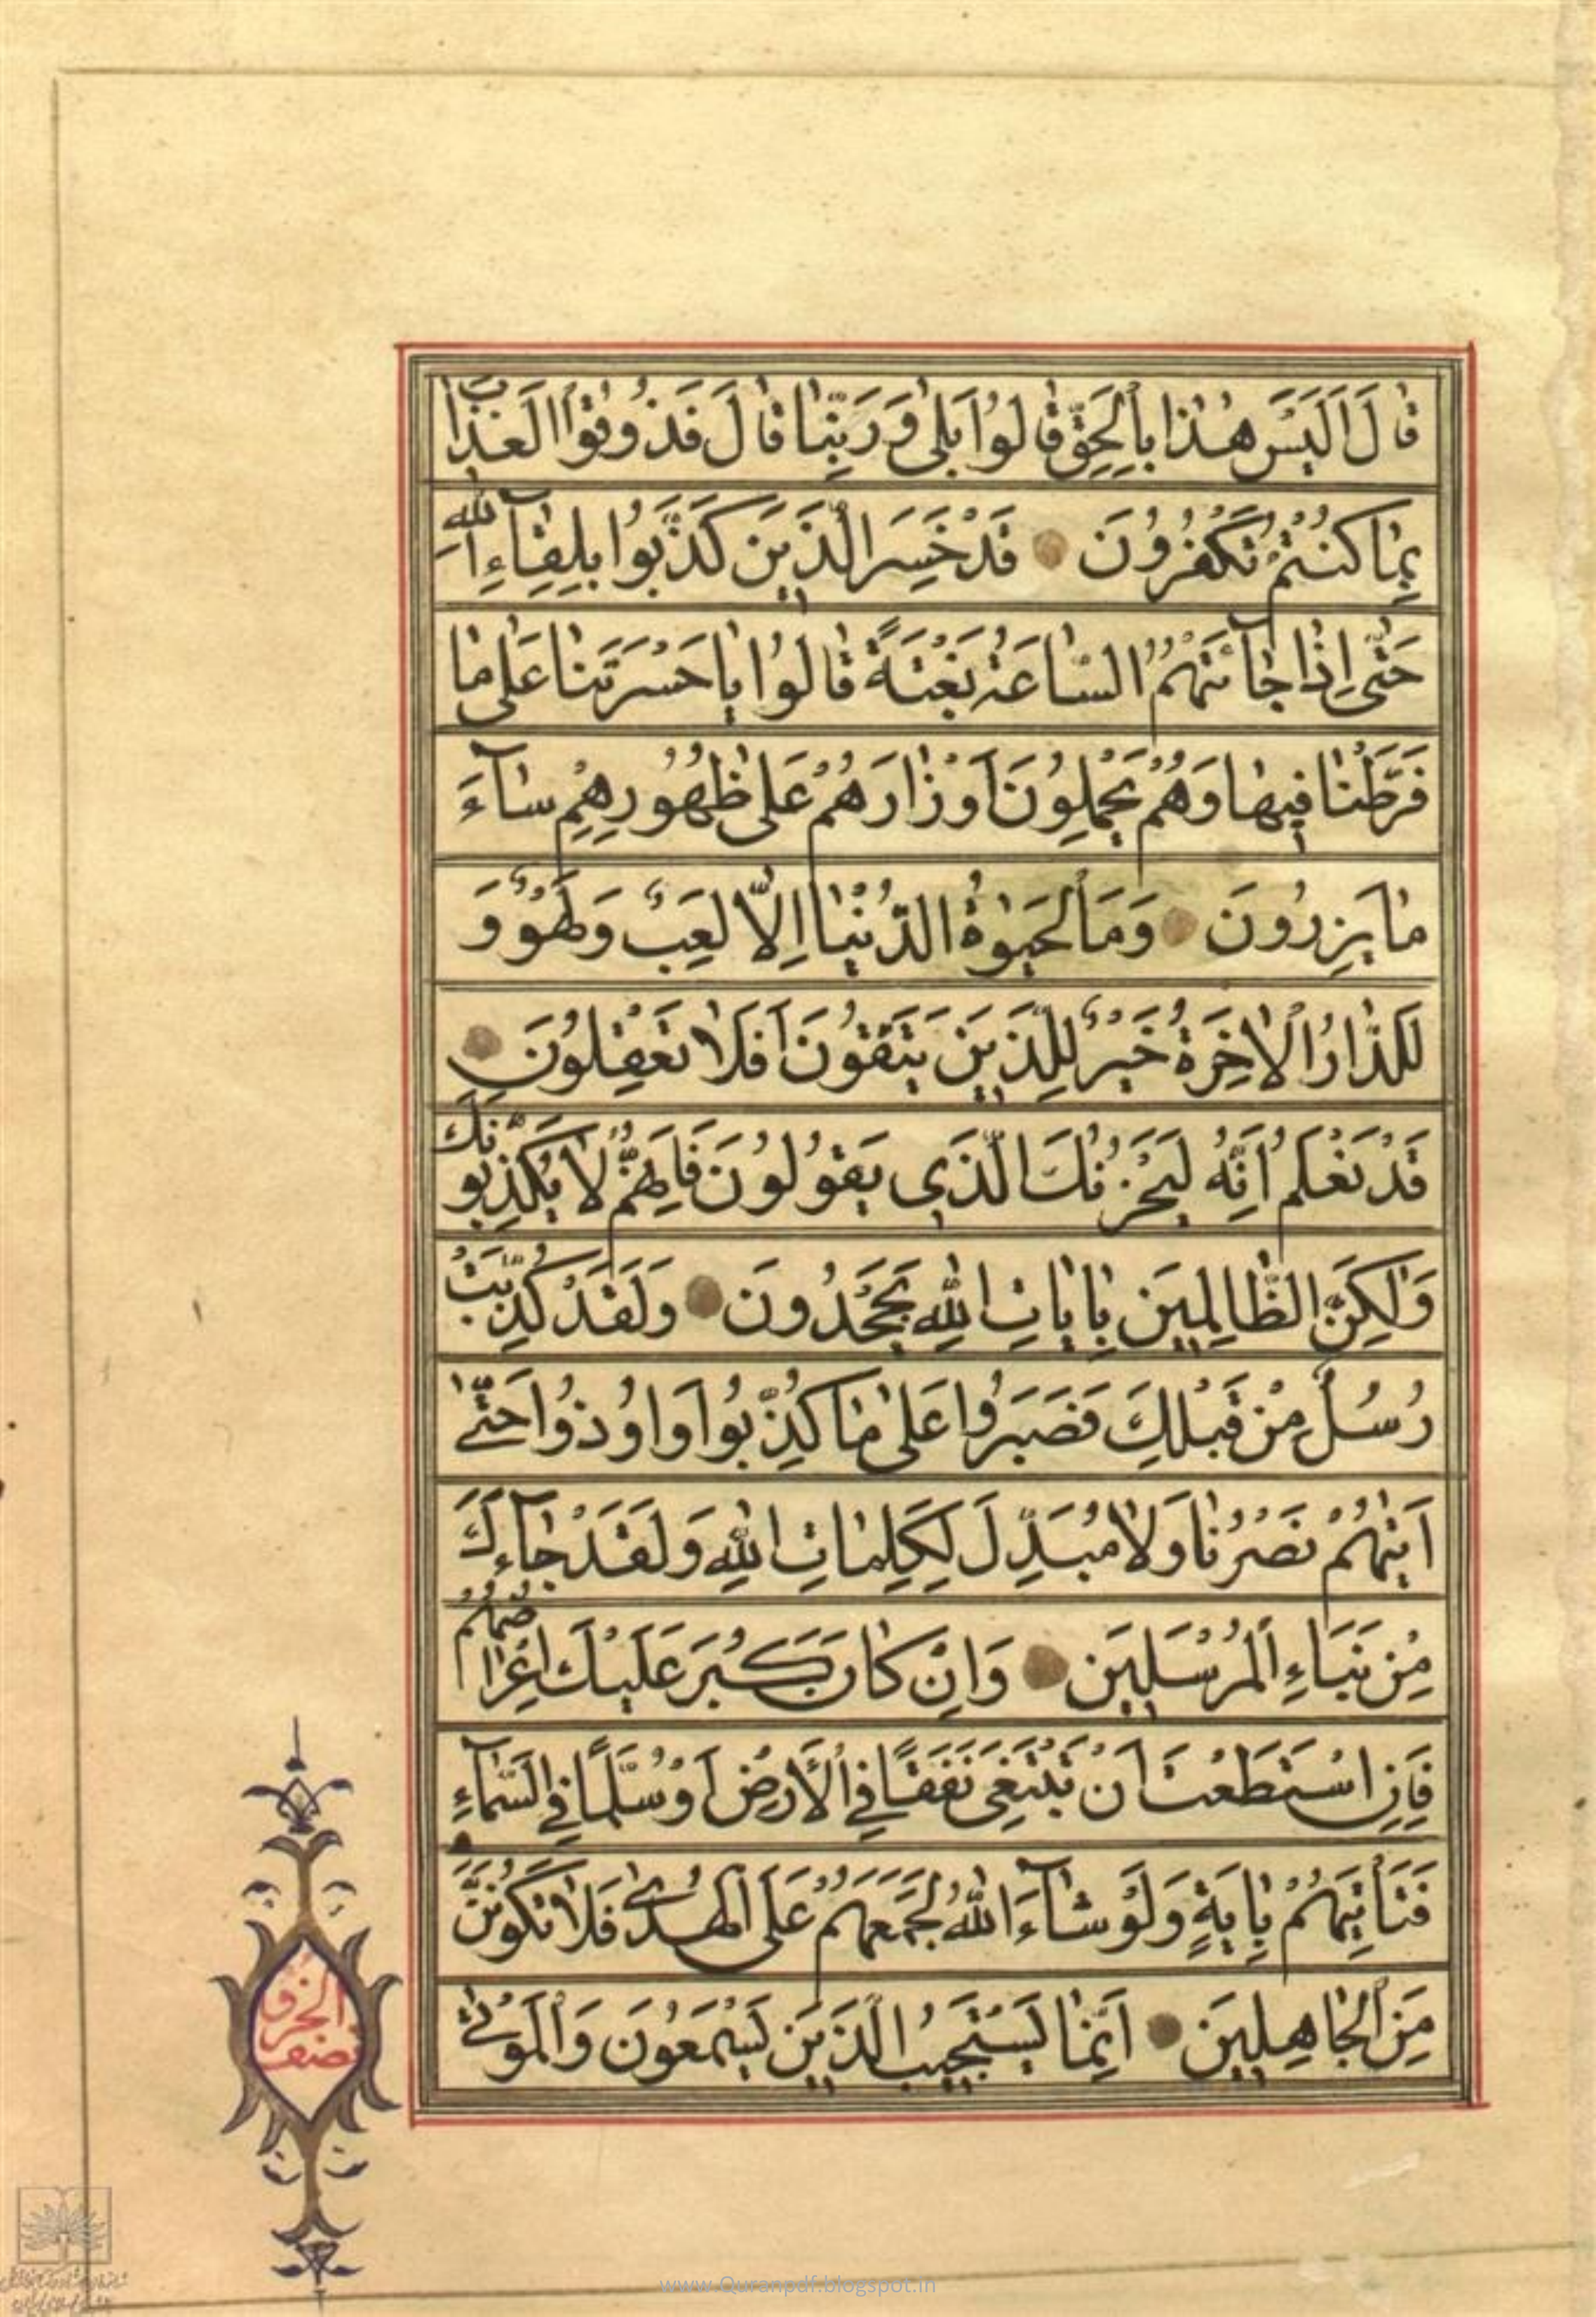 قَالَ اَلَيْسَ هٰذَا بِالْحَقِّ قَالُوا بَلٰى وَرَبِّنَا قَالَ فَذُوقُوا الْعَذَابَ
بِمَا كُنْتُمْ تَكْفُرُونَ قَدْ خَسِرَ الَّذِينَ كَذَّبُوا بِلِقَاءِ اللّٰهِ
حَتّٰى اِذَا جَآئَتْهُمُ السَّاعَةُ بَغْتَةً قَالُوا يَا حَسْرَتَنَا عَلٰى مَا
فَرَّطْنَا فِيهَا وَهُمْ يَحْمِلُونَ اَوْزَارَهُمْ عَلٰى ظُهُورِهِمْ سَآءَ
مَا يَزِرُونَ وَمَا الْحَيٰوةُ الدُّنْيَا اِلَّا لَعِبٌ وَلَهْوٌ وَ
لَلدَّارُ الْاٰخِرَةُ خَيْرٌ لِلَّذِينَ يَتَّقُونَ اَفَلَا تَعْقِلُونَ
قَدْ نَعْلَمُ اِنَّهُ لَيَحْزُنُكَ الَّذِى يَقُولُونَ فَاِنَّهُمْ لَا يُكَذِّبُونَكَ
وَلٰكِنَّ الظَّالِمِينَ بِاٰيَاتِ اللّٰهِ يَجْحَدُونَ وَلَقَدْ كُذِّبَتْ
رُسُلٌ مِنْ قَبْلِكَ فَصَبَرُوا عَلٰى مَا كُذِّبُوا وَاُوذُوا حَتّٰى
اَتٰيهُمْ نَصْرُنَا وَلَا مُبَدِّلَ لِكَلِمَاتِ اللّٰهِ وَلَقَدْ جَآءَكَ
مِنْ نَبَاءِ الْمُرْسَلِينَ وَاِنْ كَانَ كَبُرَ عَلَيْكَ اِعْرَاضُهُمْ
فَاِنِ اسْتَطَعْتَ اَنْ تَبْتَغِىَ نَفَقًا فِى الْاَرْضِ اَوْ سُلَّمًا فِى السَّمَآءِ
فَتَاْتِيَهُمْ بِاٰيَةٍ وَلَوْ شَآءَ اللّٰهُ لَجَمَعَهُمْ عَلَى الْهُدٰى فَلَا تَكُونَنَّ
مِنَ الْجَاهِلِينَ اِنَّمَا يَسْتَجِيبُ الَّذِينَ يَسْمَعُونَ وَالْمَوْتٰى
نصف
www.Quranpdf.blogspot.in